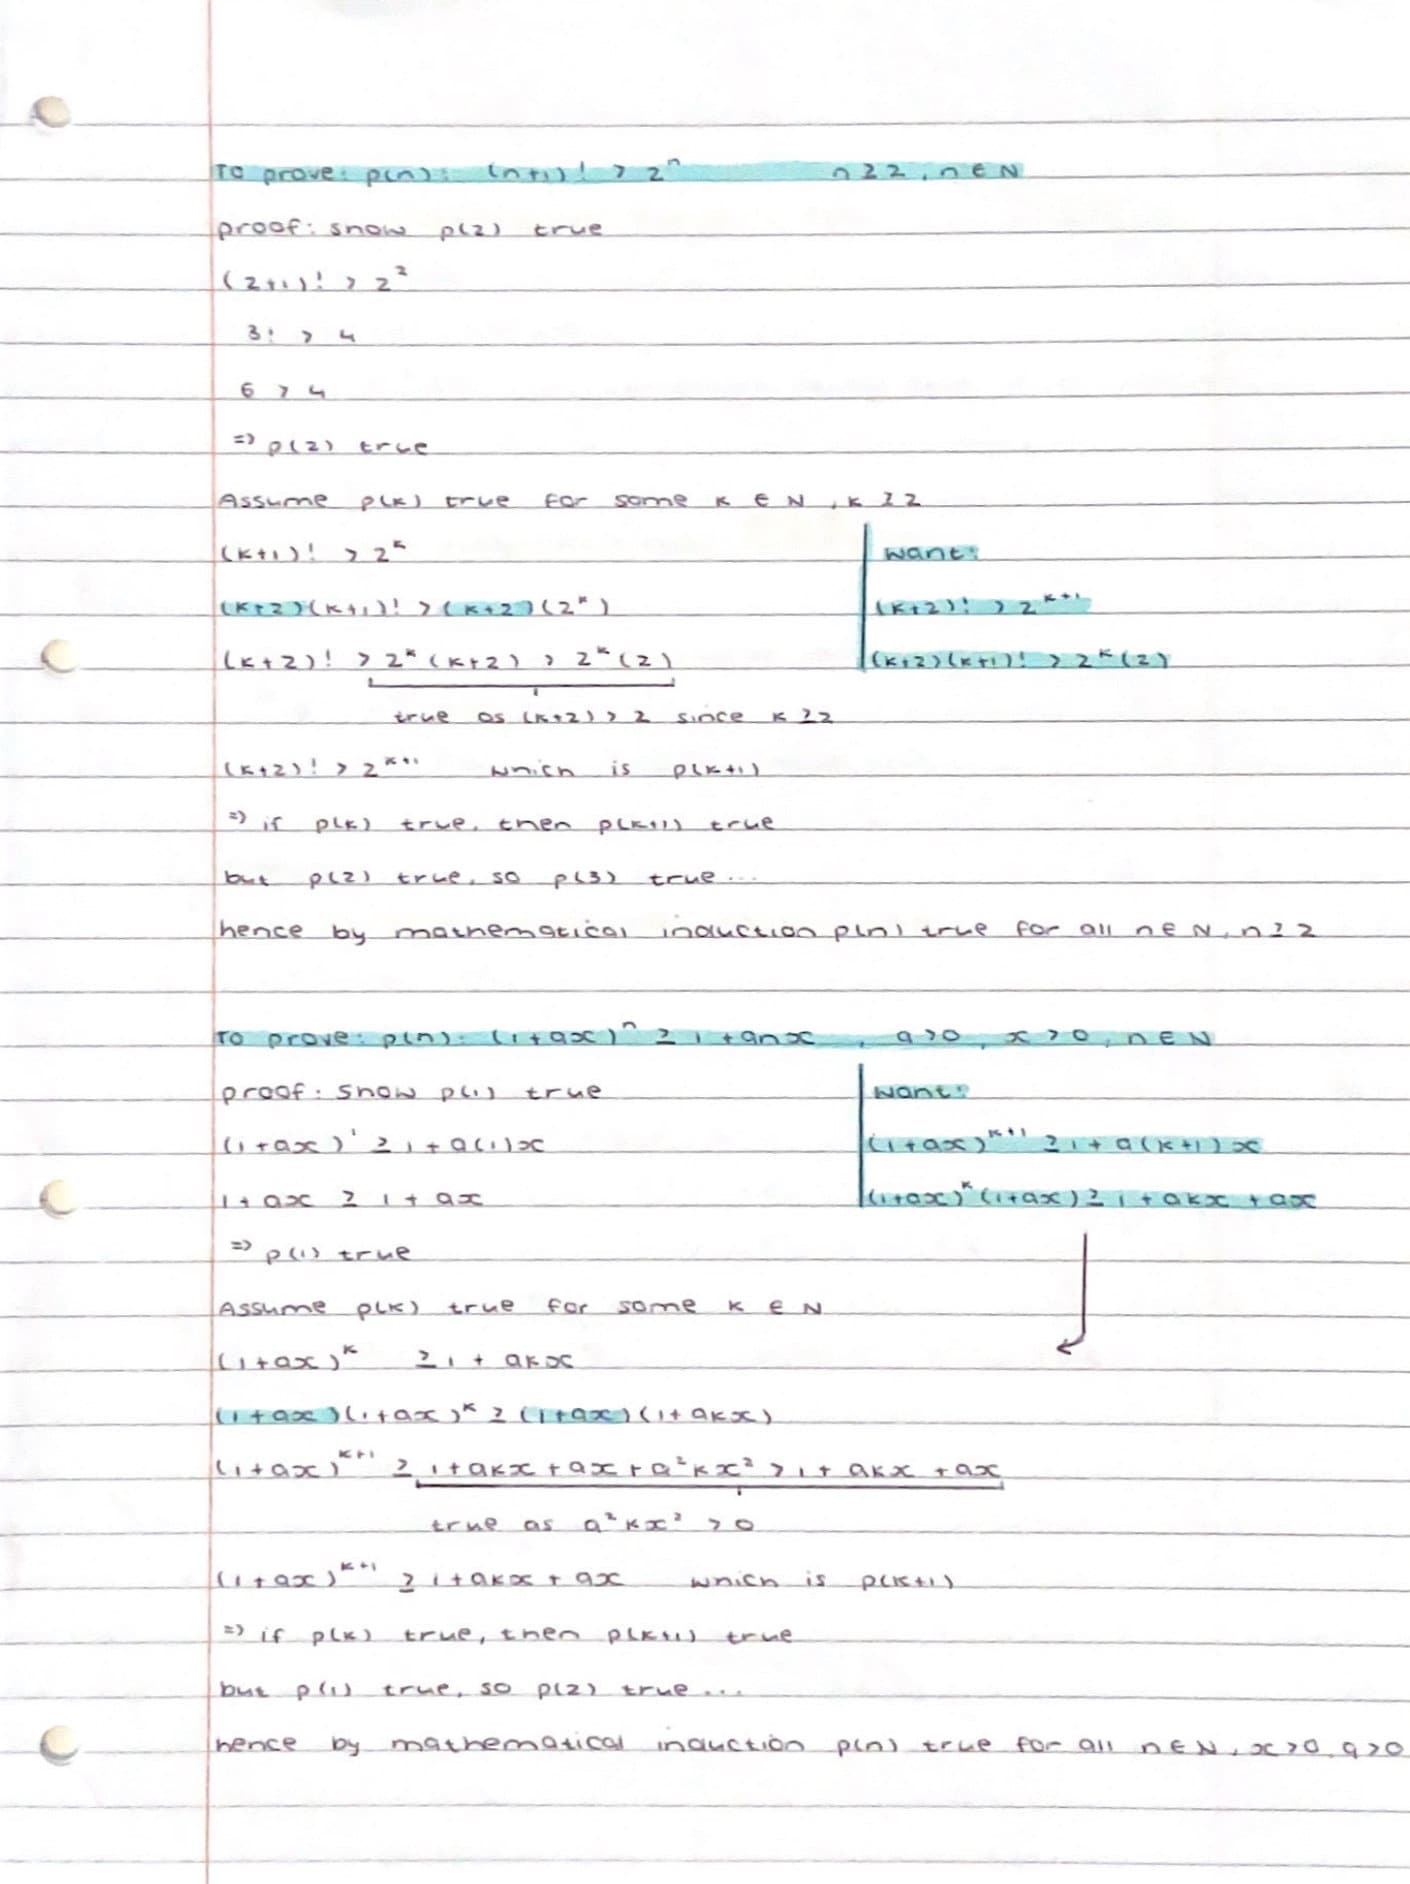 To prove: p(n): (n+1)! > 2ⁿ n ≥ 2, n ∈ N
proof: show p(2) true
(2+1)! > 2²
3! > 4
6 > 4
⇒ p(2) true
Assume p(k) true for some k ∈ N, k ≥ 2
(k+1)! > 2ᵏ
(k+2)(k+1)! > (k+2)(2ᵏ)
(k+2)! > 2ᵏ(k+2) > 2ᵏ(2)
true as (k+2) > 2 since k ≥ 2
want:
(k+2)! > 2ᵏ⁺¹
(k+2)(k+1)! > 2ᵏ(2)
(k+2)! > 2ᵏ⁺¹ which is p(k+1)
⇒ if p(k) true, then p(k+1) true
but p(2) true, so p(3) true...
hence by mathematical induction p(n) true for all n ∈ N, n ≥ 2
To prove: p(n): (1+ax)ⁿ ≥ 1+anx, a>0, x>0, n ∈ N
proof: show p(1) true
(1+ax)¹ ≥ 1+a(1)x
1+ax ≥ 1+ax
⇒ p(1) true
want:
(1+ax)ᵏ⁺¹ ≥ 1+a(k+1)x
(1+ax)ᵏ(1+ax) ≥ 1+akx+ax
Assume p(k) true for some k ∈ N
(1+ax)ᵏ ≥ 1+akx
(1+ax)(1+ax)ᵏ ≥ (1+ax)(1+akx)
(1+ax)ᵏ⁺¹ ≥ 1+akx+ax+a²kx² > 1+akx+ax
true as a²kx² > 0
(1+ax)ᵏ⁺¹ ≥ 1+akx+ax which is p(k+1)
⇒ if p(k) true, then p(k+1) true
but p(1) true, so p(2) true...
hence by mathematical induction p(n) true for all n ∈ N, x>0, a>0